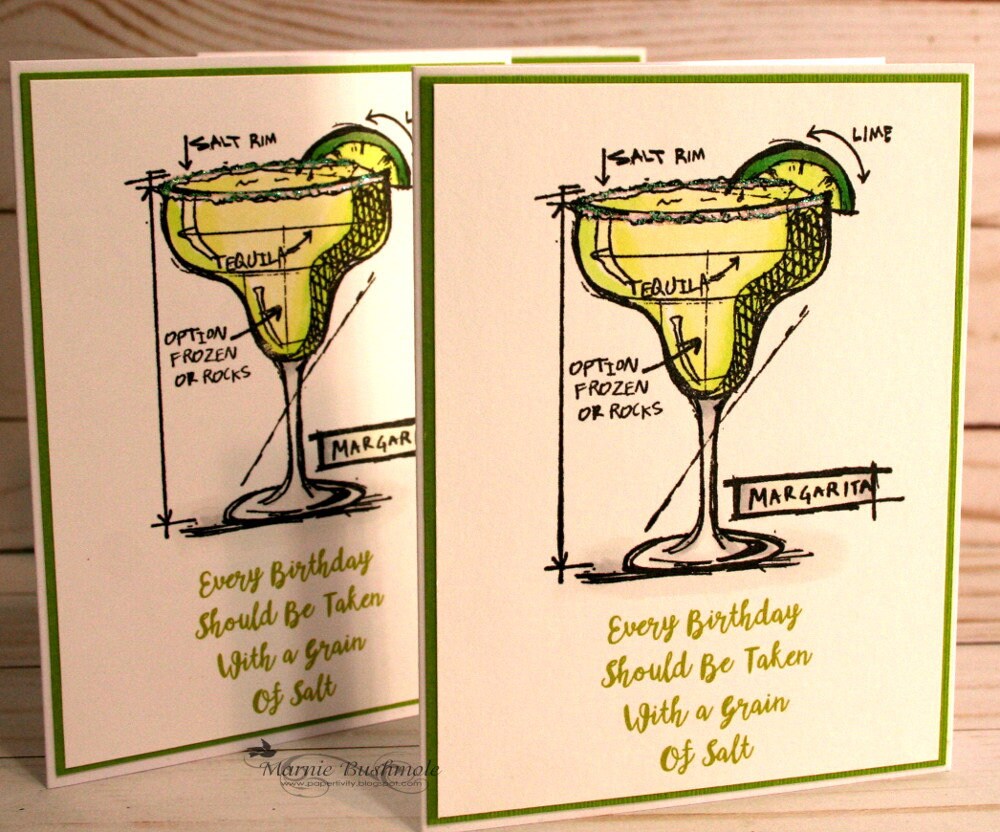 SALT RIM
TEQUILA
OPTION
FROZEN
OR ROCKS
MARGARI
Every Birthday
Should Be Taken
With a Grain
Of Salt
LIME
SALT RIM
TEQUILA
OPTION
FROZEN
OR ROCKS
MARGARITA
Every Birthday
Should Be Taken
With a Grain
Of Salt
Marnie Bushmole
www.papertivity.blogspot.com